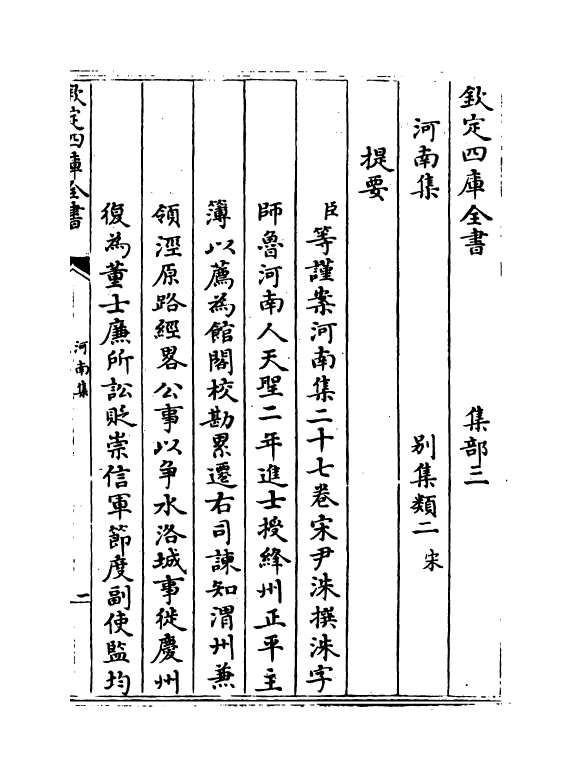 欽定四庫全書　集部三
河南集　別集類二宋
提要
臣等謹案河南集二十七卷宋尹洙撰洙字
師魯河南人天聖二年進士授絳州正平主
簿以薦為館閣校勘累遷右司諫知渭州兼
領涇原路經畧公事以爭水洛城事徙慶州
復為董士廉所訟貶崇信軍節度副使監均
欽定四庫全書
河南集
二